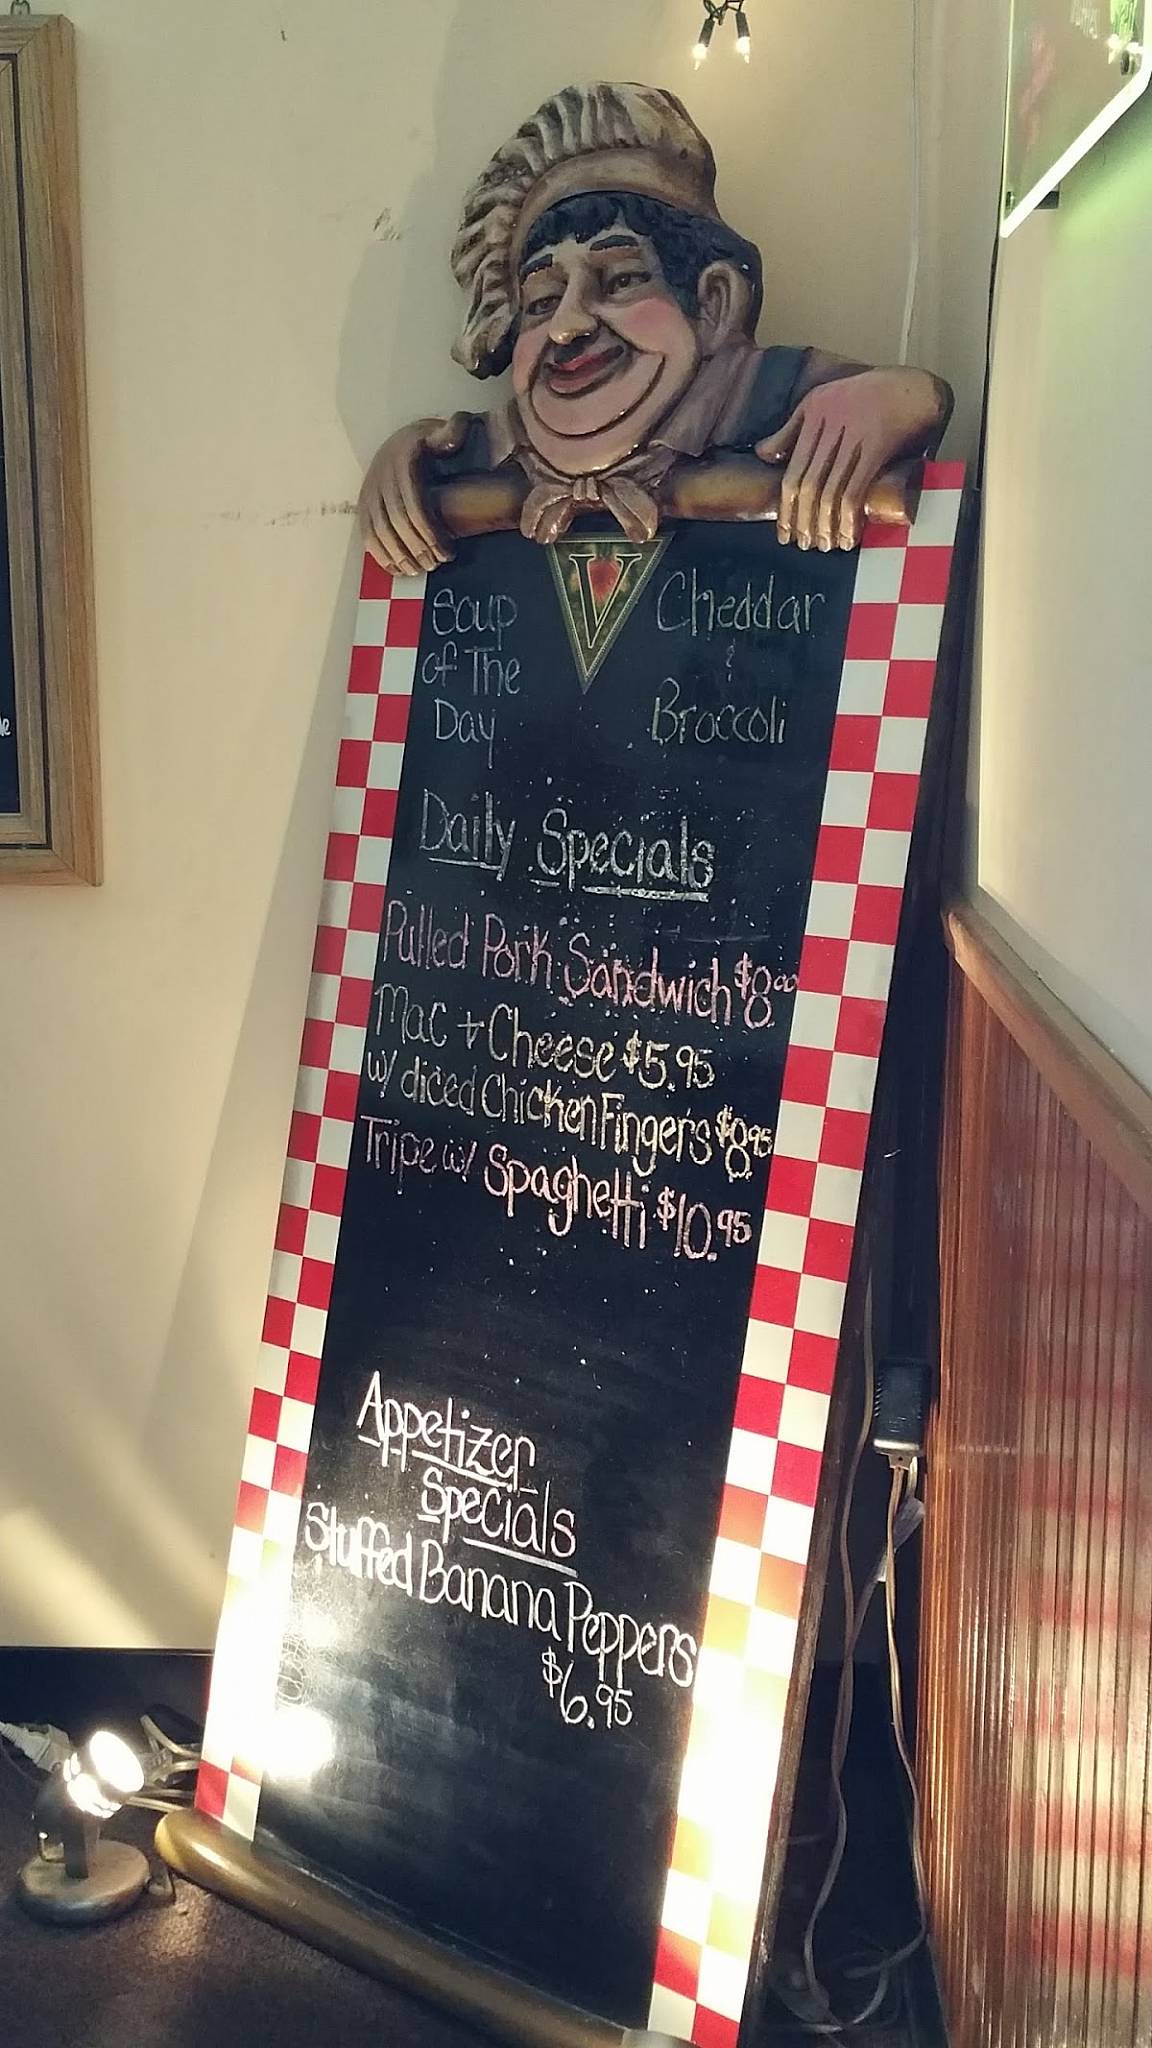 V
Soup
of The
Day
Cheddar
&
Broccoli
Daily Specials
Pulled Pork Sandwich $8.00
Mac + Cheese $5.95
w/ diced Chicken Fingers $8.95
Tripe w/ Spaghetti $10.95
Appetizer
Specials
Stuffed Banana Peppers
$6.95